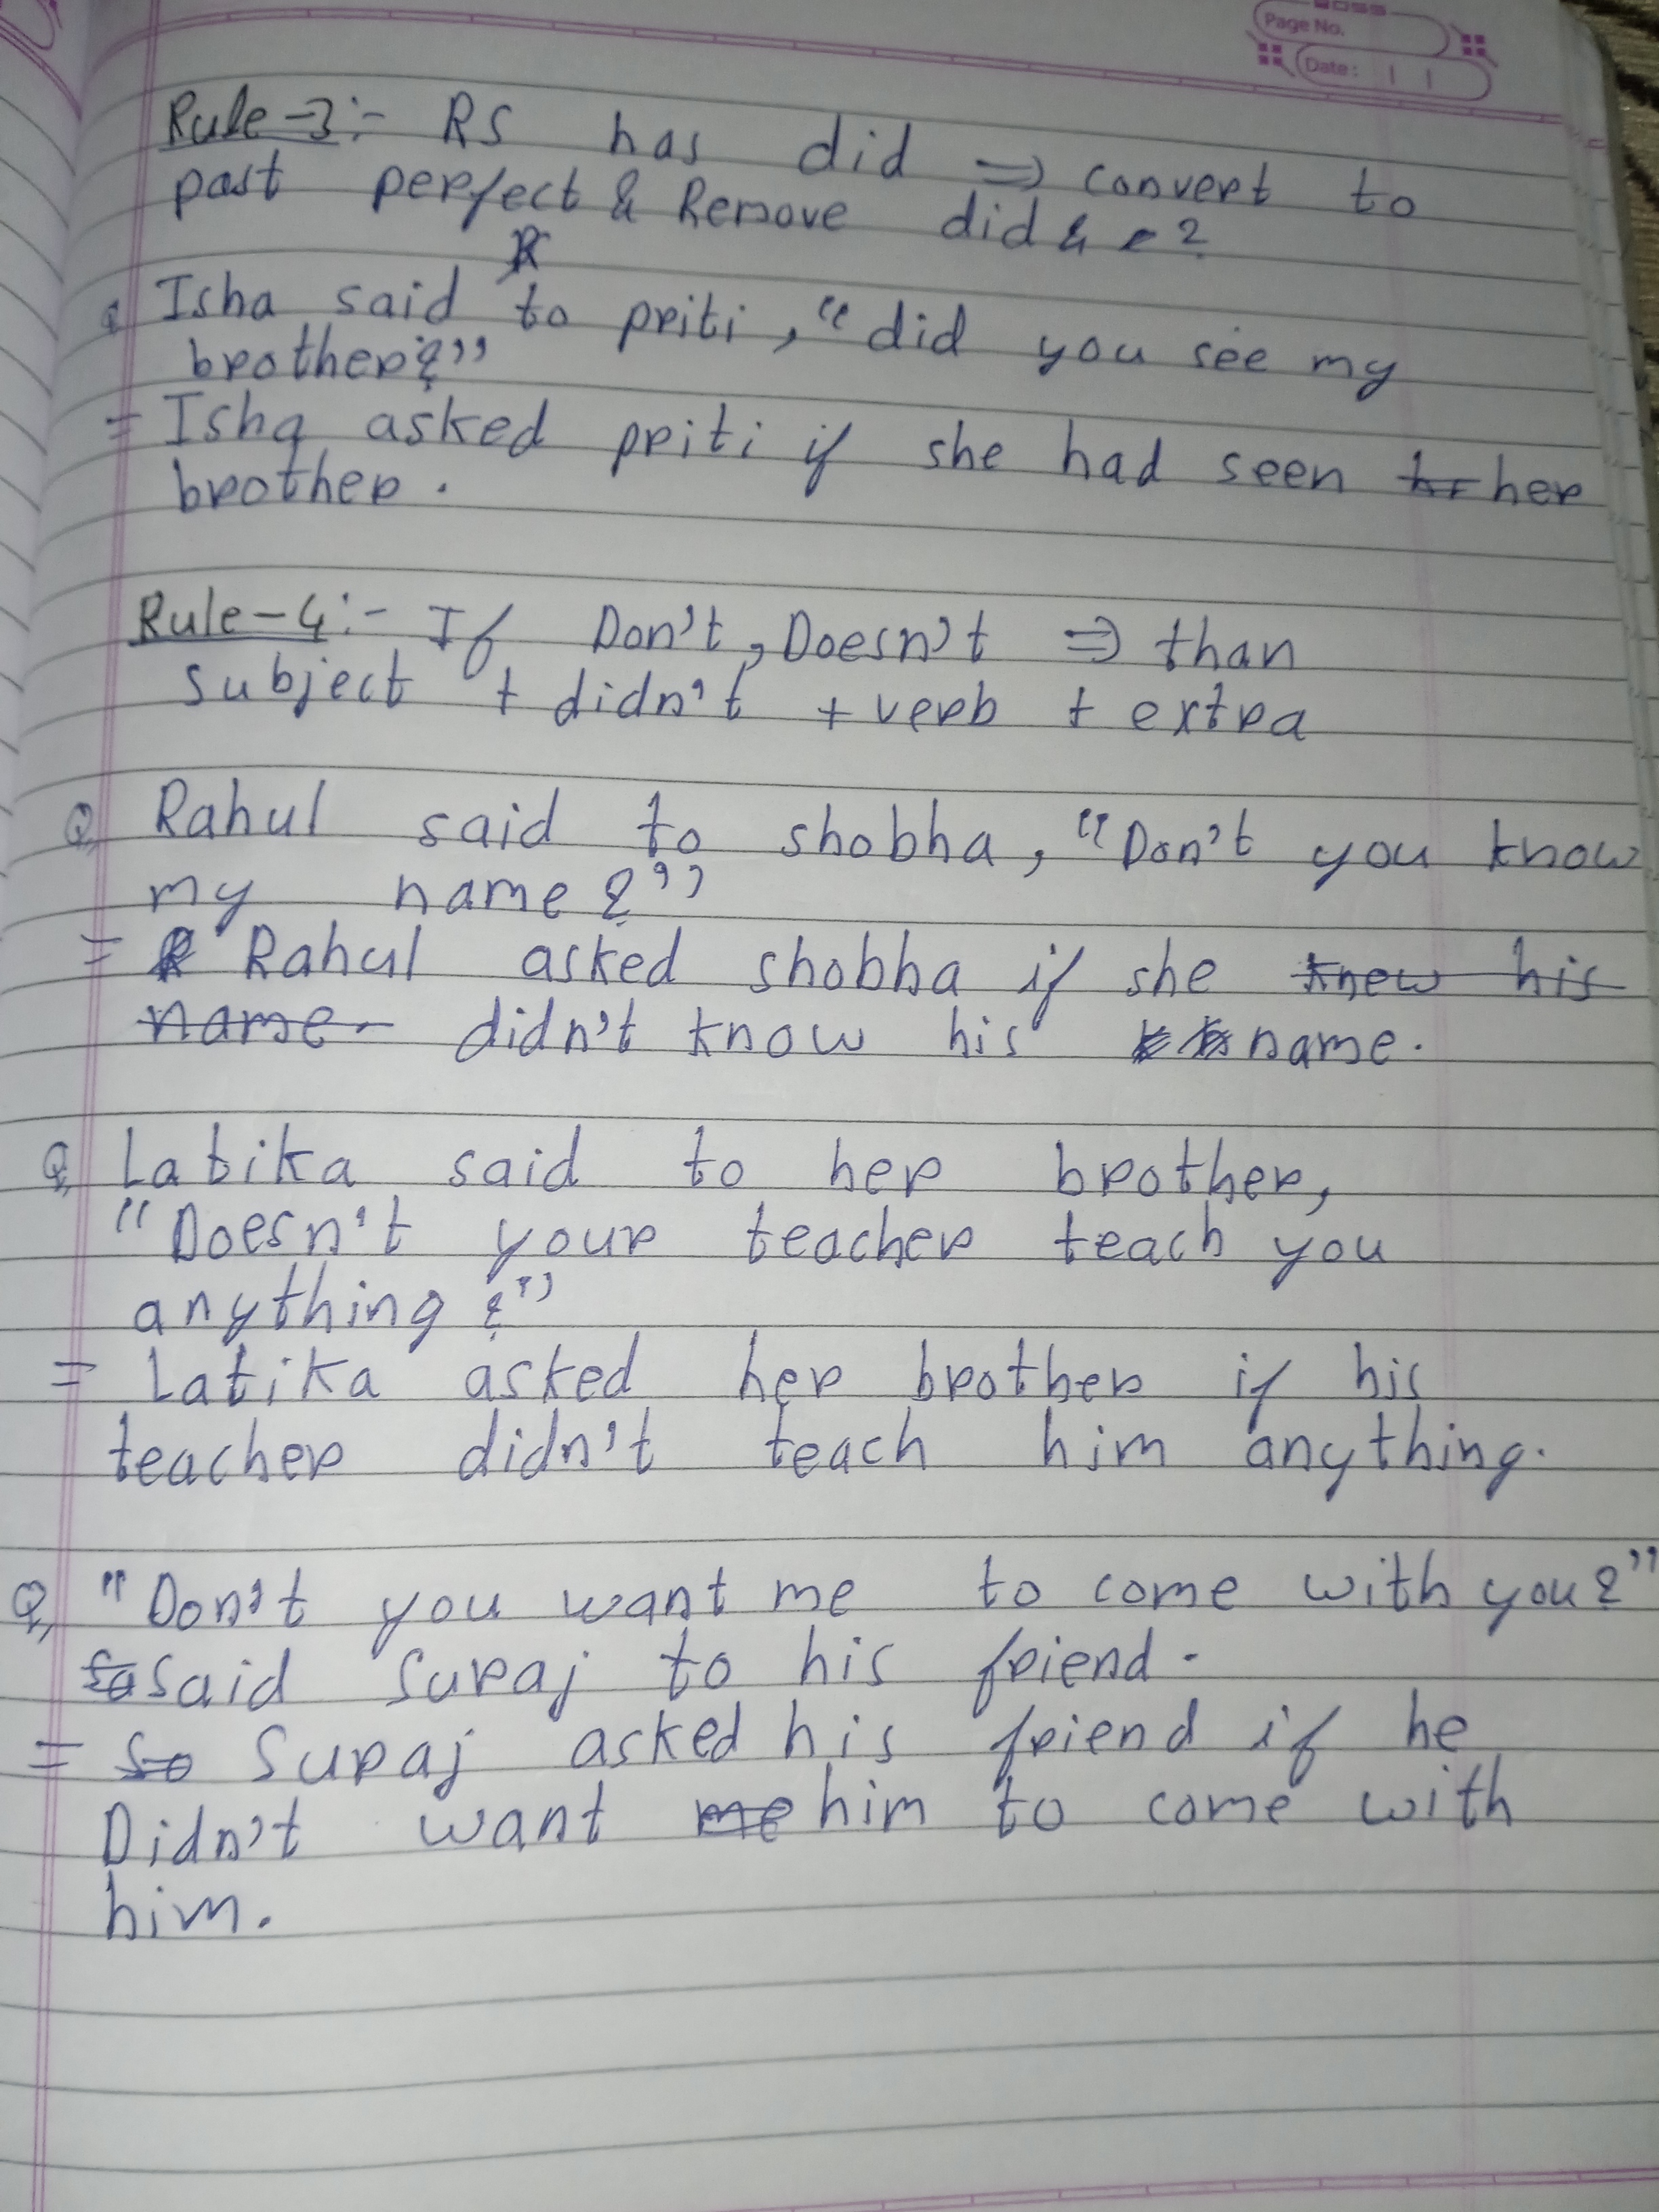 Page No.
Date:
Rule-3:- RS has did ⇒ convert to
past perfect & Remove did & ?
Q Isha said to priti, "did you see my
brother?"
= Isha asked priti if she had seen her
brother.
Rule-4:- If Don't, Doesn't ⇒ than
subject + didn't + verb + extra
Q, Rahul said to shobha, "Don't you know
my name?"
= Rahul asked shobha if she knew his
name. didn't know his name.
Q, Latika said to her brother,
"Doesn't your teacher teach you
anything?"
= Latika asked her brother if his
teacher didn't teach him anything.
Q, "Don't you want me to come with you?"
sa said suraj to his friend.
= so suraj asked his friend if he
Didn't want me him to come with
him.